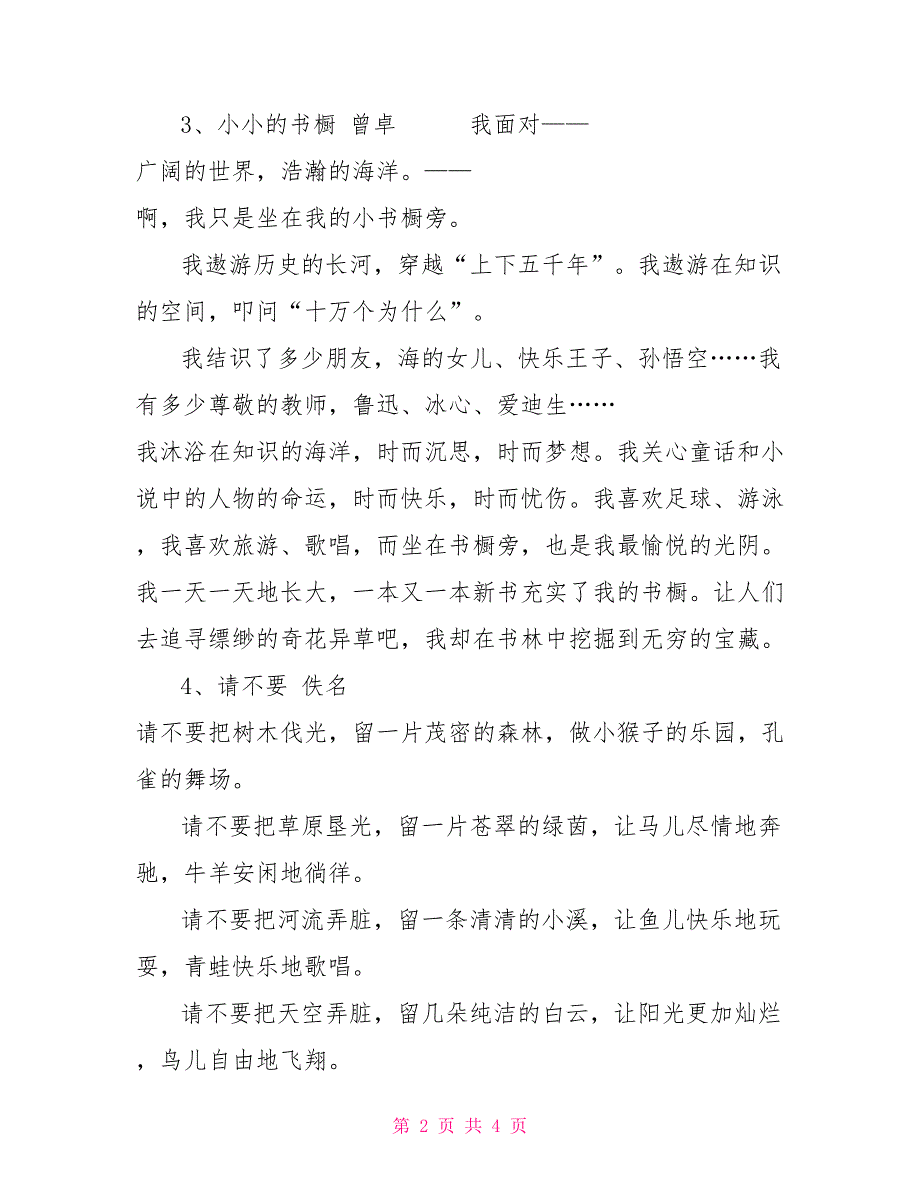 3、小小的书橱 曾卓 我面对——
广阔的世界，浩瀚的海洋。——
啊，我只是坐在我的小书橱旁。
我遨游历史的长河，穿越“上下五千年”。我遨游在知识
的空间，叩问“十万个为什么”。
我结识了多少朋友，海的女儿、快乐王子、孙悟空……我
有多少尊敬的教师，鲁迅、冰心、爱迪生……
我沐浴在知识的海洋，时而沉思，时而梦想。我关心童话和小
说中的人物的命运，时而快乐，时而忧伤。我喜欢足球、游泳
，我喜欢旅游、歌唱，而坐在书橱旁，也是我最愉悦的光阴。
我一天一天地长大，一本又一本新书充实了我的书橱。让人们
去追寻缥缈的奇花异草吧，我却在书林中挖掘到无穷的宝藏。
4、请不要 佚名
请不要把树木伐光，留一片茂密的森林，做小猴子的乐园，孔
雀的舞场。
请不要把草原垦光，留一片苍翠的绿茵，让马儿尽情地奔
驰，牛羊安闲地徜徉。
请不要把河流弄脏，留一条清清的小溪，让鱼儿快乐地玩
耍，青蛙快乐地歌唱。
请不要把天空弄脏，留几朵纯洁的白云，让阳光更加灿烂
，鸟儿自由地飞翔。
第 2 页 共 4 页